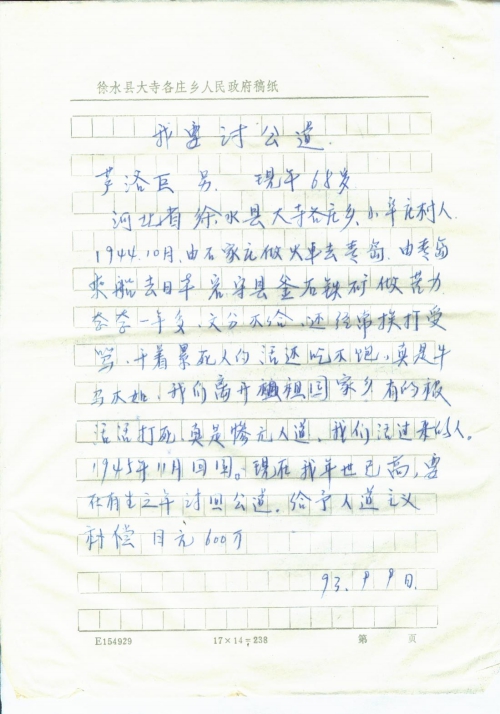 徐水县大寺各庄乡人民政府稿纸
我要讨公道.
李洛巨 男. 现年68岁
河北省徐水县大寺各庄乡.小辛庄村人.
1944.10月.由石家庄做火车去青岛.由青岛
乘船去日本岩守县釜石铁矿做苦力
整整一年多,文分不给,还经常挨打受
骂,干着累死人的活还吃不饱,真是牛
马不如,我们离开祖国家乡有的被
活活打死,真是惨无人道,我们活过来的人.
1945年11月回国.现在我年世已高,要
在有生之年讨回公道.给予人道主义
补偿 日元600万
93.9.9日.
E154929 17×14=238 第 页